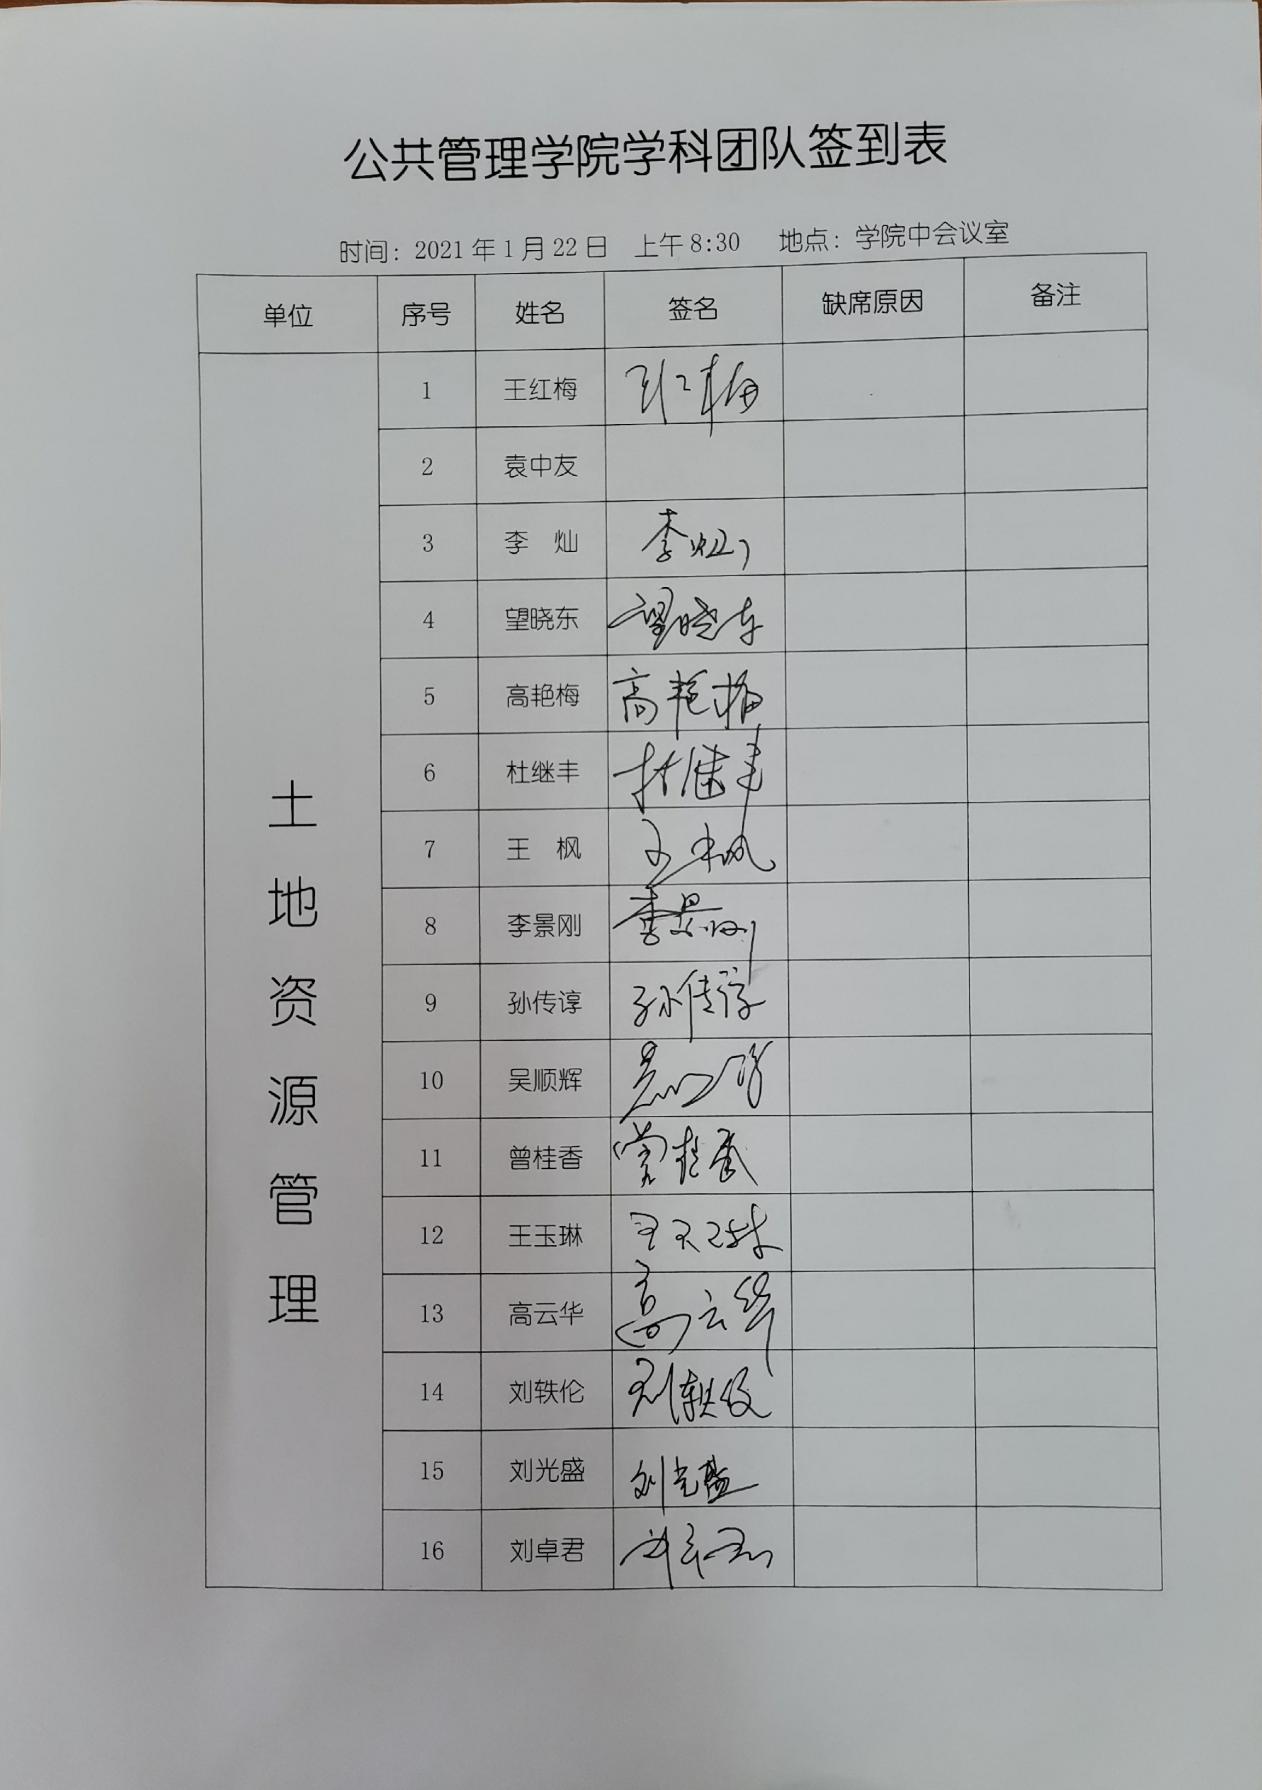 公共管理学院学科团队签到表
时间：2021年1月22日 上午8:30 地点：学院中会议室
单位 序号 姓名 签名 缺席原因 备注
土地资源管理
1 王红梅 王红梅
2 袁中友
3 李 灿 李灿
4 望晓东 望晓东
5 高艳梅 高艳梅
6 杜继丰 杜继丰
7 王 枫 王枫
8 李景刚 李景刚
9 孙传谆 孙传谆
10 吴顺辉 吴顺辉
11 曾桂香 曾桂香
12 王玉琳 王玉琳
13 高云华 高云华
14 刘轶伦 刘轶伦
15 刘光盛 刘光盛
16 刘卓君 刘卓君